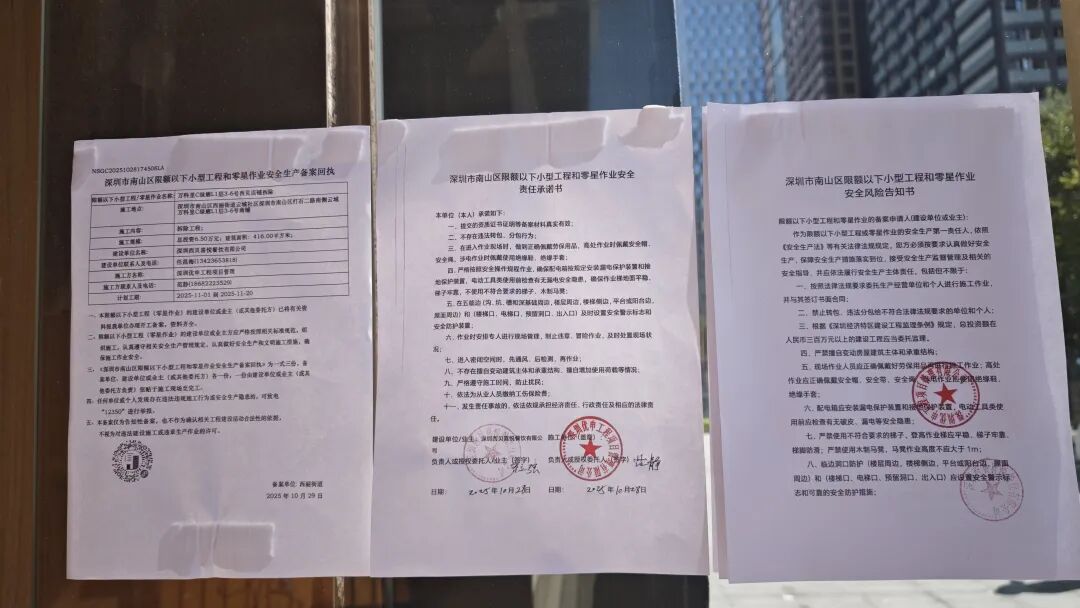 NSGC20251028174506LA
深圳市南山区限额以下小型工程和零星作业安全生产备案回执
限额以下小型工程/零星作业名称:
万科里C级糖L1层3-6号西贝店铺拆除
施工地点:
深圳市南山区西丽街道云城社区深圳市南山区打石二路南侧云城
万科里C级糖L1层3-6号商铺
施工内容:
拆除工程;
施工规模:
总投资6.50万元; 建筑面积: 416.00平方米;
建设单位名称:
深圳西贝喜悦餐饮有限公司
建设单位联系人及电话:
任磊梅(13423653818)
施工方名称:
深圳优华工程项目管理
施工方联系人及电话:
范静(18682223529)
计划工期:
2025-11-01 至 2025-11-20
一、本限额以下小型工程(零星作业)的建设单位或业主(或其他委托方)已将有关资
料报我单位办理开工备案,资料齐全。
二、限额以下小型工程(零星作业)的建设单位或业主方应严格按照相关标准规范,组
织施工。认真遵守相关安全生产管理规定,认真做好安全生产和文明施工措施,确
保施工作业安全。
三、《深圳市南山区限额以下小型工程和零星作业安全生产备案回执》为一式三份,备
案单位、建设单位或业主(或其他委托方)各一份,一份由建设单位或业主(或其
他委托方负责)张贴于施工现场至完工。
四、任何单位或个人发现存在违法违规施工行为或安全生产隐患的,可致电
"12350"进行举报。
五、本备案仅为告知性备案,也不作为确认相关工程建设活动合法性的依据,
不视为对违法建设施工或违章生产作业的许可。
备案单位: 西丽街道
2025 年 10 月 29 日
深圳市南山区限额以下小型工程和零星作业安全
责任承诺书
本单位(本人)承诺如下:
一、提交的资质证书证明等备案材料真实有效;
二、不存在违法转包、分包行为;
三、在进入作业现场时,做到正确佩戴劳保用品,高处作业时佩戴安全帽、
安全绳,涉电作业时佩戴使用绝缘鞋、绝缘手套;
四、严格按照安全操作规程作业,确保配电箱按规定安装漏电保护装置和接
地保护装置,电动工具类使用前检查有无漏电安全隐患,确保作业梯地面平稳、
梯子牢靠,不使用不符合要求的梯子、木制马凳;
五、在五临边(沟、坑、槽和深基础周边,楼层周边,楼梯侧边,平台或阳台边,
屋面周边)和(楼梯口、电梯口、预留洞口、出入口)及时设置安全警示标志和
安全防护装置;
六、作业时安排专人进行现场管理,制止违章、冒险作业,及时处置现场状
况;
七、进入密闭空间时,先通风、后检测、再作业;
八、不存在擅自变动建筑主体和承重结构、擅自增加使用荷载等情况;
九、严格遵守施工时间,防止扰民;
十、依法为从业人员缴纳工伤保险费;
十一、发生责任事故的,依法依规承担经济责任、行政责任及相应的法律责
任。
建设单位/业主: 深圳西贝喜悦餐饮有限公
司
施工单位(盖章)
负责人或授权委托人/业主(签字)
负责人或授权委托人(签字)
日期: 2025年10月28日
日期: 2025年10月28日
深圳市南山区限额以下小型工程和零星作业
安全风险告知书
限额以下小型工程和零星作业的备案申请人(建设单位或业主):
作为限额以下小型工程或零星作业的安全生产第一责任人,依照
《安全生产法》等有关法律法规规定,贵方必须按要求认真做好安全生
产、保障安全生产措施落实到位、接受安全生产监督管理及相关的
安全指导,并应依法履行安全生产主体责任,包括但不限于:
一、按照法律法规要求委托生产经营单位和个人进行施工作业,
并与其签订书面合同;
二、禁止转包、违法分包给不符合法律法规要求的单位和个人;
三、根据《深圳经济特区建设工程监理条例》规定,总投资额在
人民币三百万元以上的建设工程应当委托监理。
四、严禁擅自变动房屋建筑主体和承重结构;
五、现场作业人员应正确佩戴劳保用品再进行施工作业;高处
作业应正确佩戴安全帽、安全带、安全绳,涉电作业时使用绝缘鞋、
绝缘手套;
六、配电箱应安装漏电保护装置和接地保护装置,电动工具类使
用前应检查有无破皮、漏电等安全隐患;
七、严禁使用不符合要求的梯子、登高作业梯应平稳、梯子牢靠、
梯脚防滑;严禁使用木制马凳,马凳作业高度不应大于1m;
八、临边洞口防护(楼层周边,楼梯侧边,平台或阳台边,屋面
周边)和(楼梯口、电梯口、预留洞口、出入口)应设置安全警示标
志和可靠的安全防护措施;